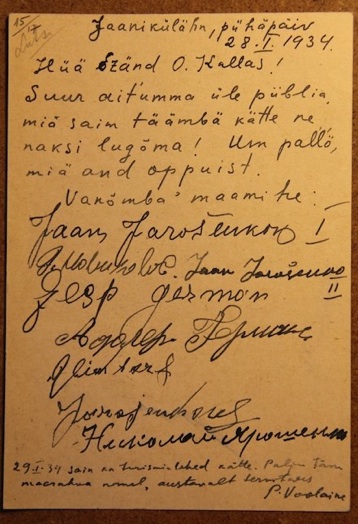 15/14
Luts.
Jaanikülähn, pühäpäiv
28.I.1934.
Hüä szänd O. Kallas!
Suur aitumma üle püblia,
miä saim täämbä kätte ne,
naksi lugõma! Um pallõ,
miä and oppuist.
Vanõmba' maamihe:
Jaan Jarošenkov I
Jaan Jarošenko
II
Jesp German
Герман
Николай Ярошенко
29.I.34 sain ka kätte. Palju tänu
maarahva nimel, austavalt tervitades
P. Voolaine